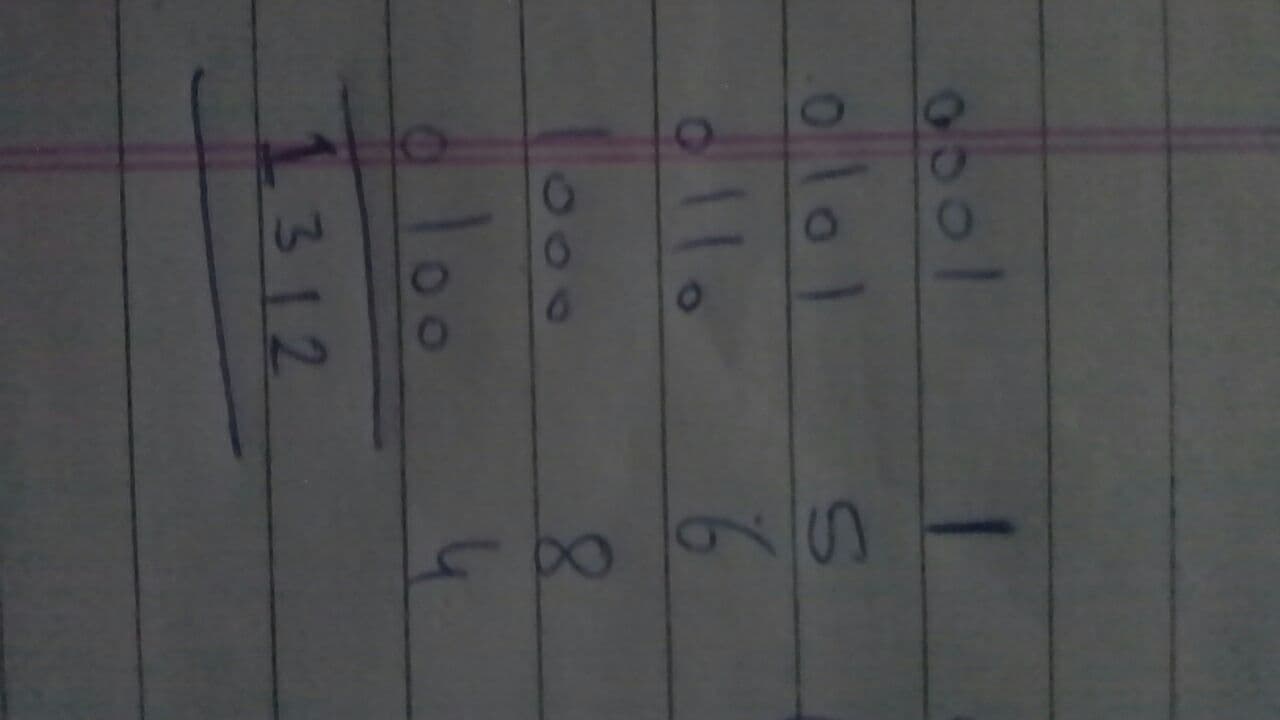 0001 1
0101 5
0110 6
1000 8
0100 4
1312